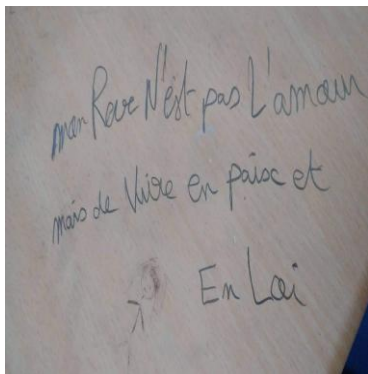 mon Reve N'est pas L'amour
mais de Vivre en paix et
En Loi